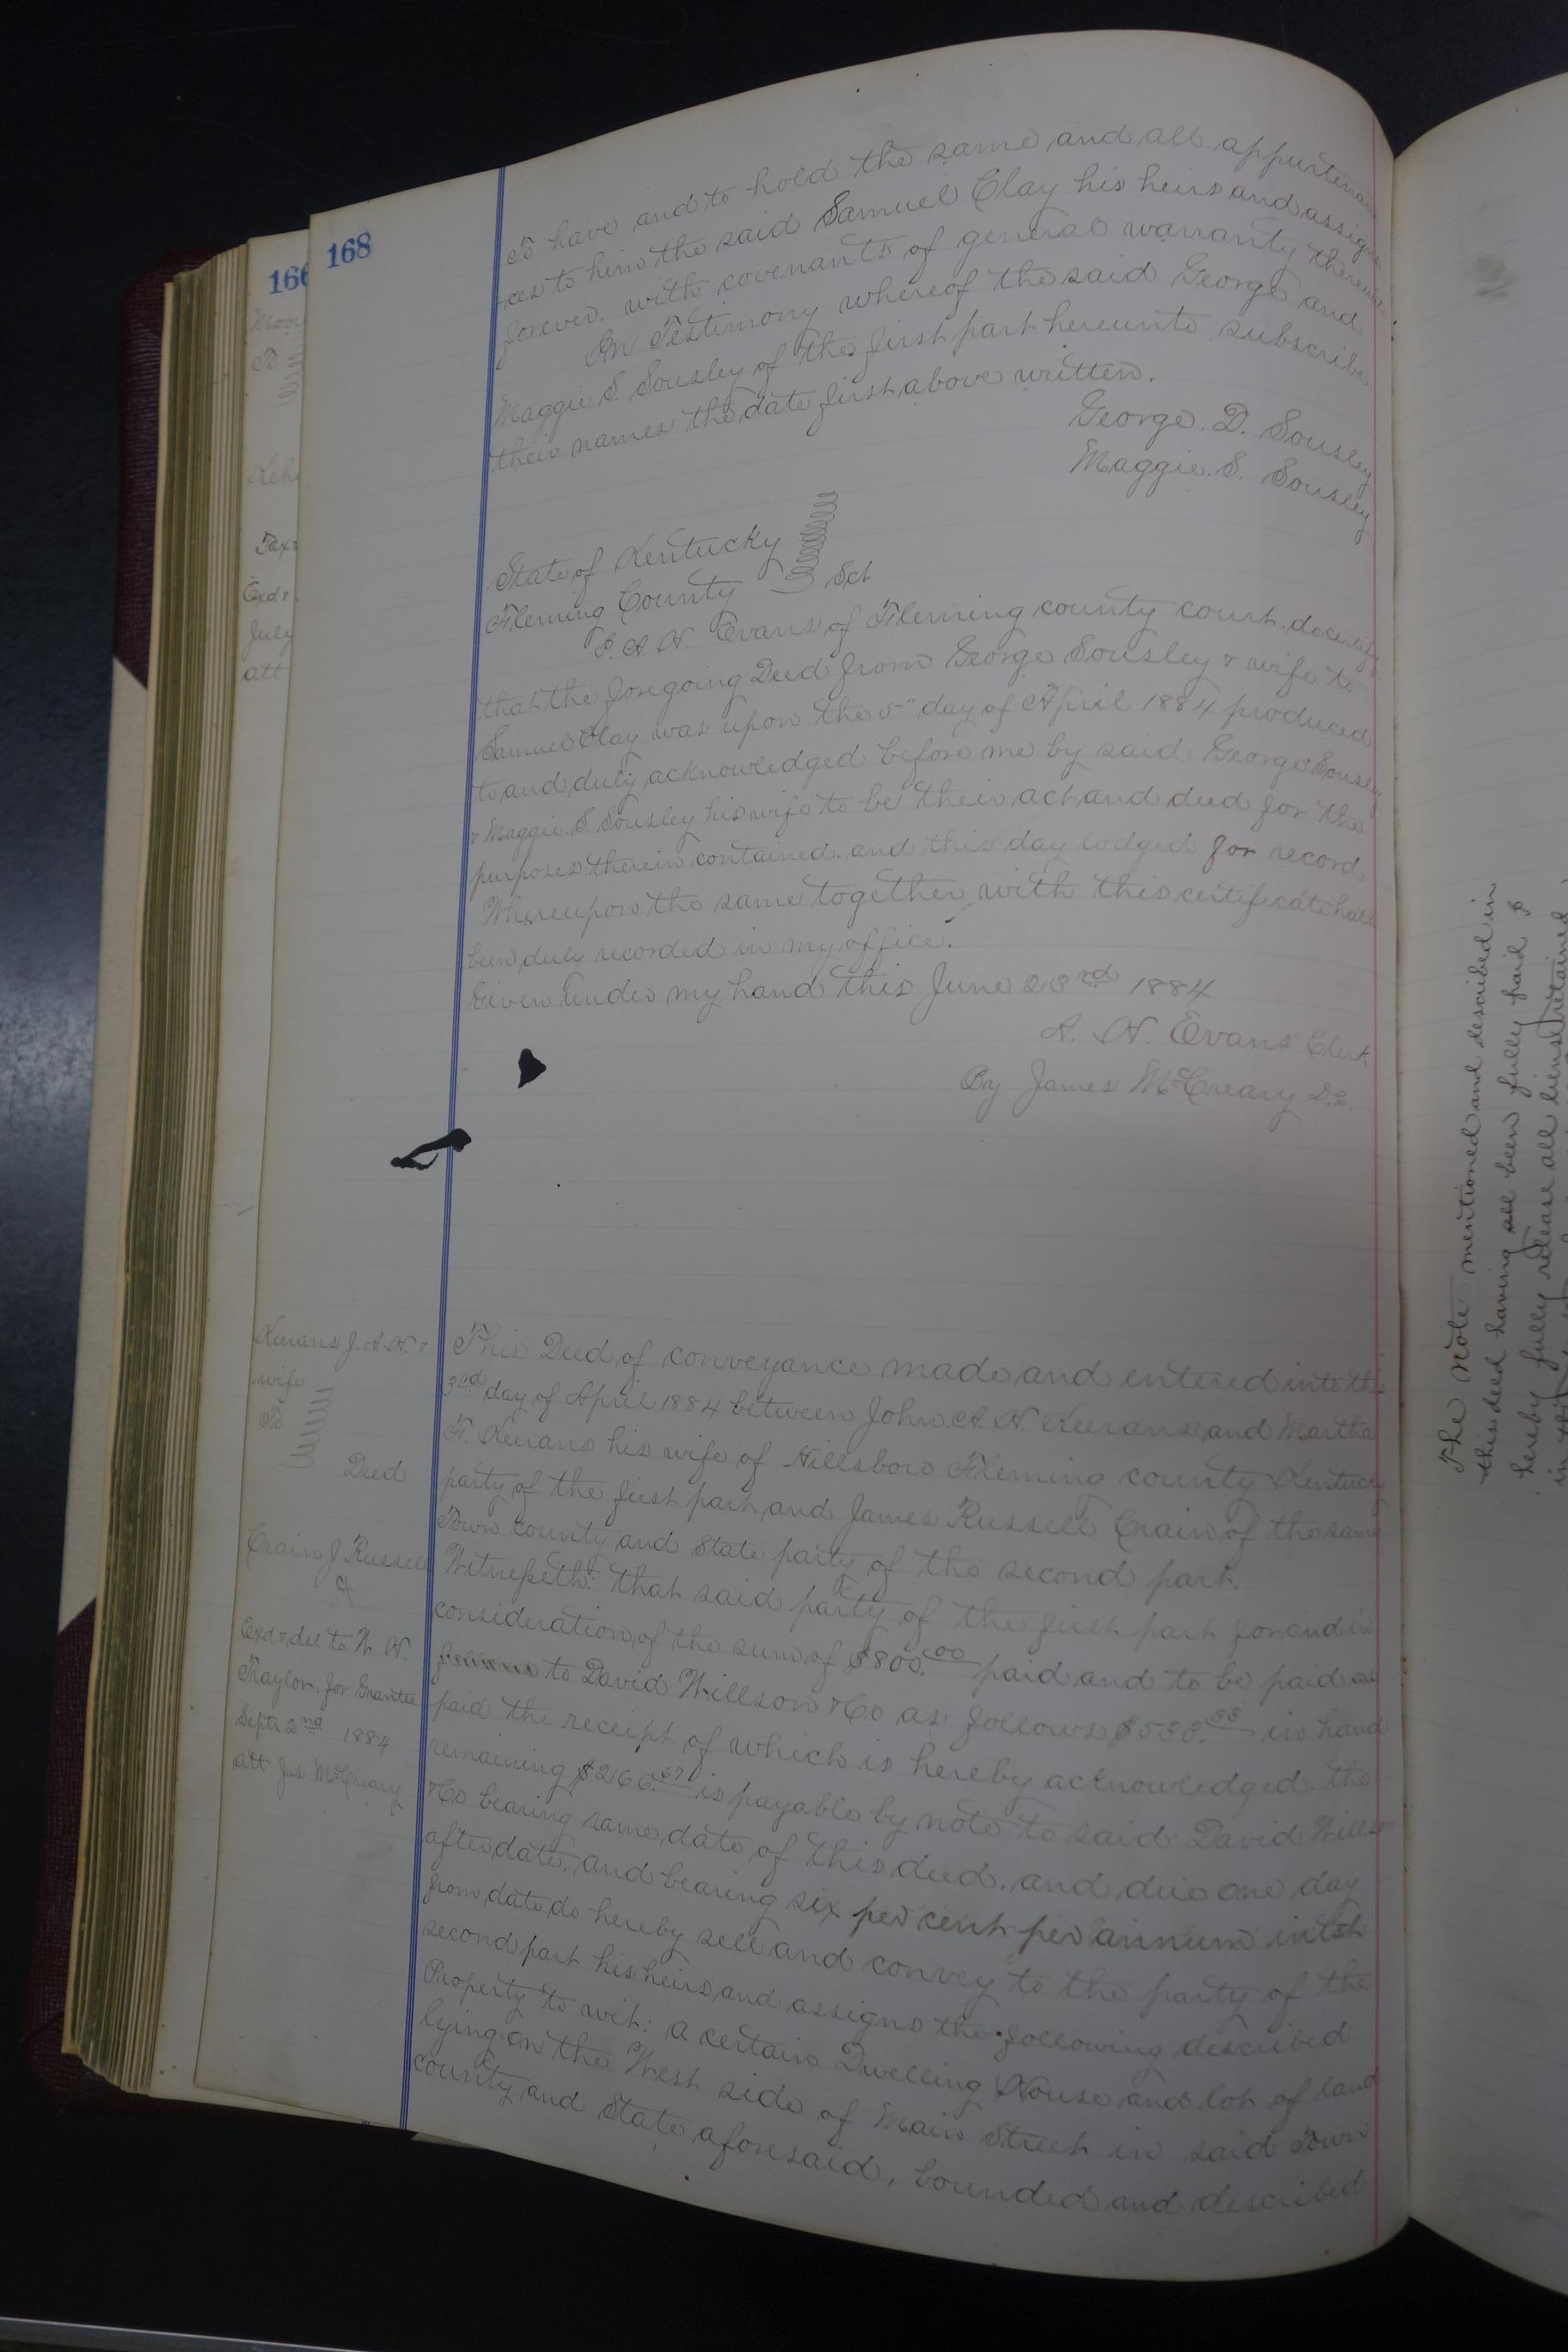 168
To have and to hold the same and all appurtenan
ces to him the said Samuel Clay his heirs and assigns
forever. with covenants of general warranty
In Testimony whereof the said George and
Maggie S. Sousley of the first part hereunto subscribe
their names the date first above written.
George. D. Sousley
Maggie. S. Sousley
State of Kentucky
Fleming County Sct
I. A. H. Evans of Fleming county court. do certify
that the foregoing Deed from George Sousley & wife to
Samuel Clay was upon the 5" day of April 1884 produced
to and duly acknowledged before me by said George Sousley
& Maggie. S. Sousley his wife to be their act and deed for the
purposes therein contained. and this day lodged for record,
Whereupon the same together with this certificate hath
been duly recorded in my office.
Given under my hand this June 23rd 1884
A. H. Evans Clerk
By James McCreary D.C.
Keerans J. A. H. &
wife
To
Deed
Crain J Russell
Exd & del to W. H.
Traylor. for Grantee
Septr 2nd 1884
att Jas McCreary
This Deed of conveyance made and entered into this
3rd day of April 1884 between John. A. H. Keerans and Martha
F. Keerans his wife of Hillsboro Fleming county Kentucky
party of the first part. and James Russell Crain of the same
Town county and State party of the second part.
Witnesseth: that said party of the first part for and in
consideration of the sum of $800.00 paid and to be paid
to David Willson & Co as follows $533.33 in hand
paid the receipt of which is hereby acknowledged the
remaining $266.67 is payable by note to said David Willson
& Co bearing same date of this deed. and due one day
after date. and bearing six per cent per annum intst
from date do hereby sell and convey to the party of the
second part his heirs and assigns the following described
Property to wit: a certain Dwelling House and lot of land
lying on the West side of Main Street in said Town
county and State aforesaid, bounded and described
166
July
att
The note mentioned and described in
this deed having all been fully paid I
hereby fully release all liens retained